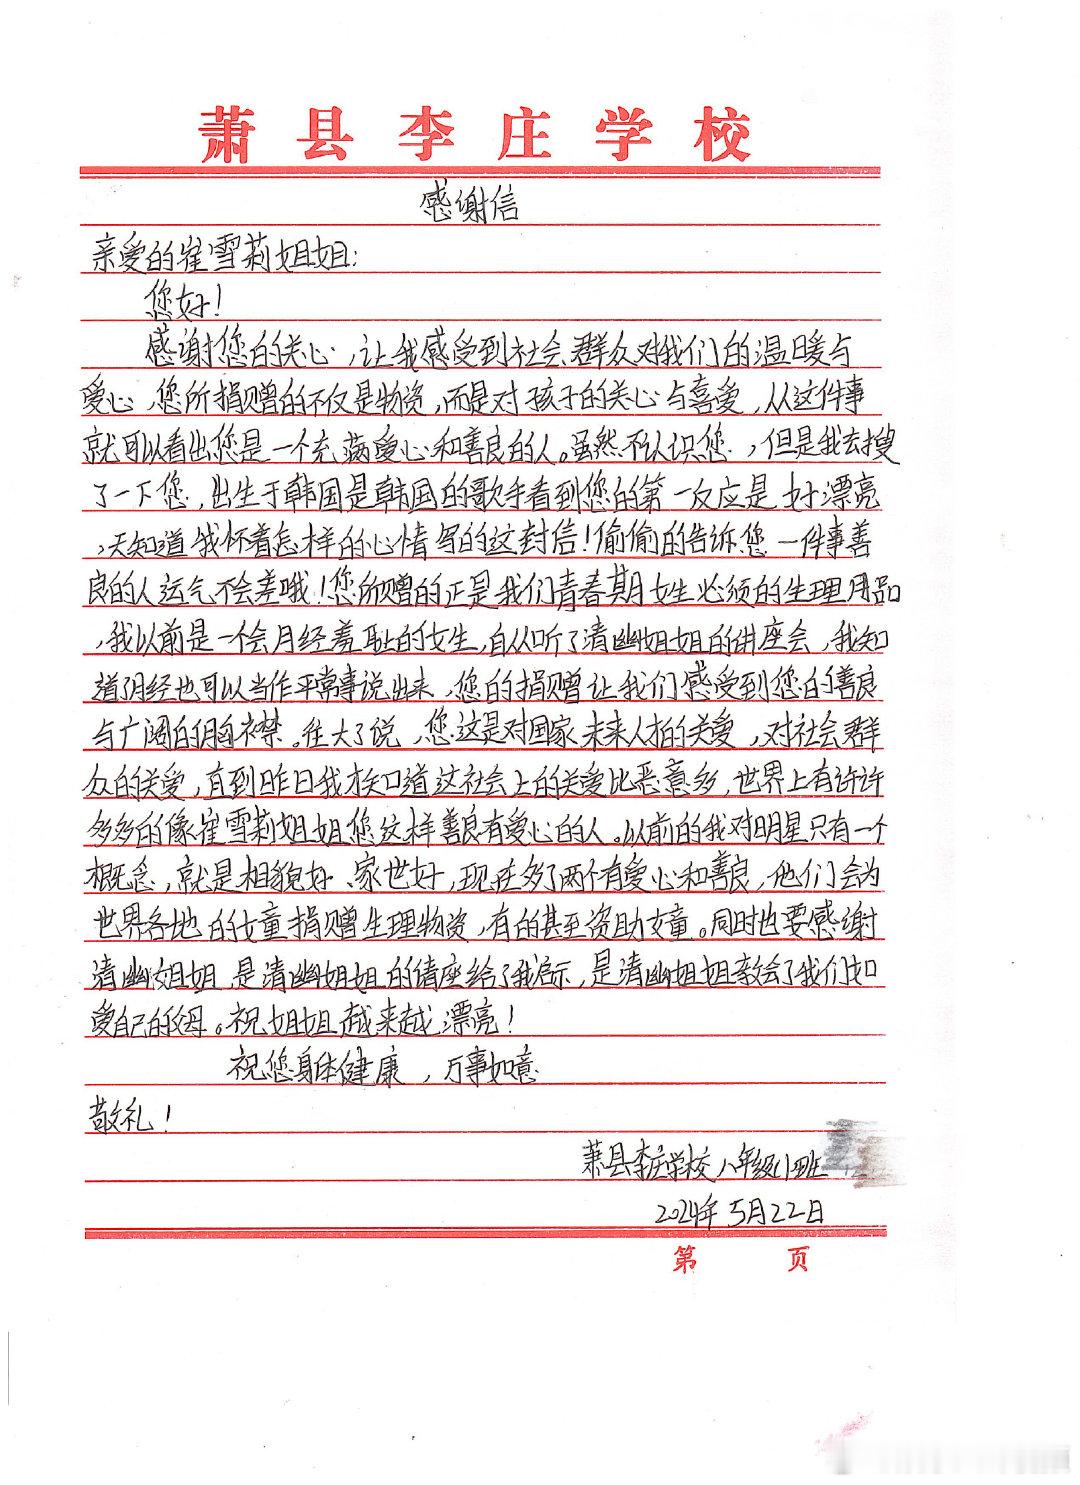 萧县李庄学校
感谢信
亲爱的崔雪莉姐姐:
您好!
感谢您的关心,让我感受到社会群众对我们的温暖与
爱心,您所捐赠的不仅是物资,而是对孩子的关心与喜爱,从这件事
就可以看出您是一个充满爱心和善良的人。虽然不认识您,但是我去搜
了一下您,出生于韩国是韩国的歌手看到您的第一反应是好漂亮
,天知道我怀着怎样的心情写的这封信!偷偷的告诉您一件事善
良的人运气不会差哦!您所赠的正是我们青春期女生必须的生理用品
,我以前是一个会月经羞耻的女生,自从听了清幽姐姐的讲座会,我知
道了月经也可以当作平常事说出来,您的捐赠让我们感受到您的善良
与广阔的胸襟。往大了说,您这是对国家未来人才的关爱,对社会群
众的关爱,直到昨日我才知道这社会上的关爱比恶意多,世界上有许许
多多的像崔雪莉姐姐您这样善良有爱心的人。以前的我对明星只有一个
概念,就是相貌好、家世好,现在多了两个有爱心和善良,他们会为
世界各地的女童捐赠生理物资,有的甚至资助女童。同时也要感谢
清幽姐姐,是清幽姐姐的讲座给了我启示,是清幽姐姐教会了我们如
爱自己的父母。祝姐姐越来越漂亮!
祝您身体健康,万事如意
敬礼!
萧县李庄学校八年级(1)班
2024年5月22日
第 页